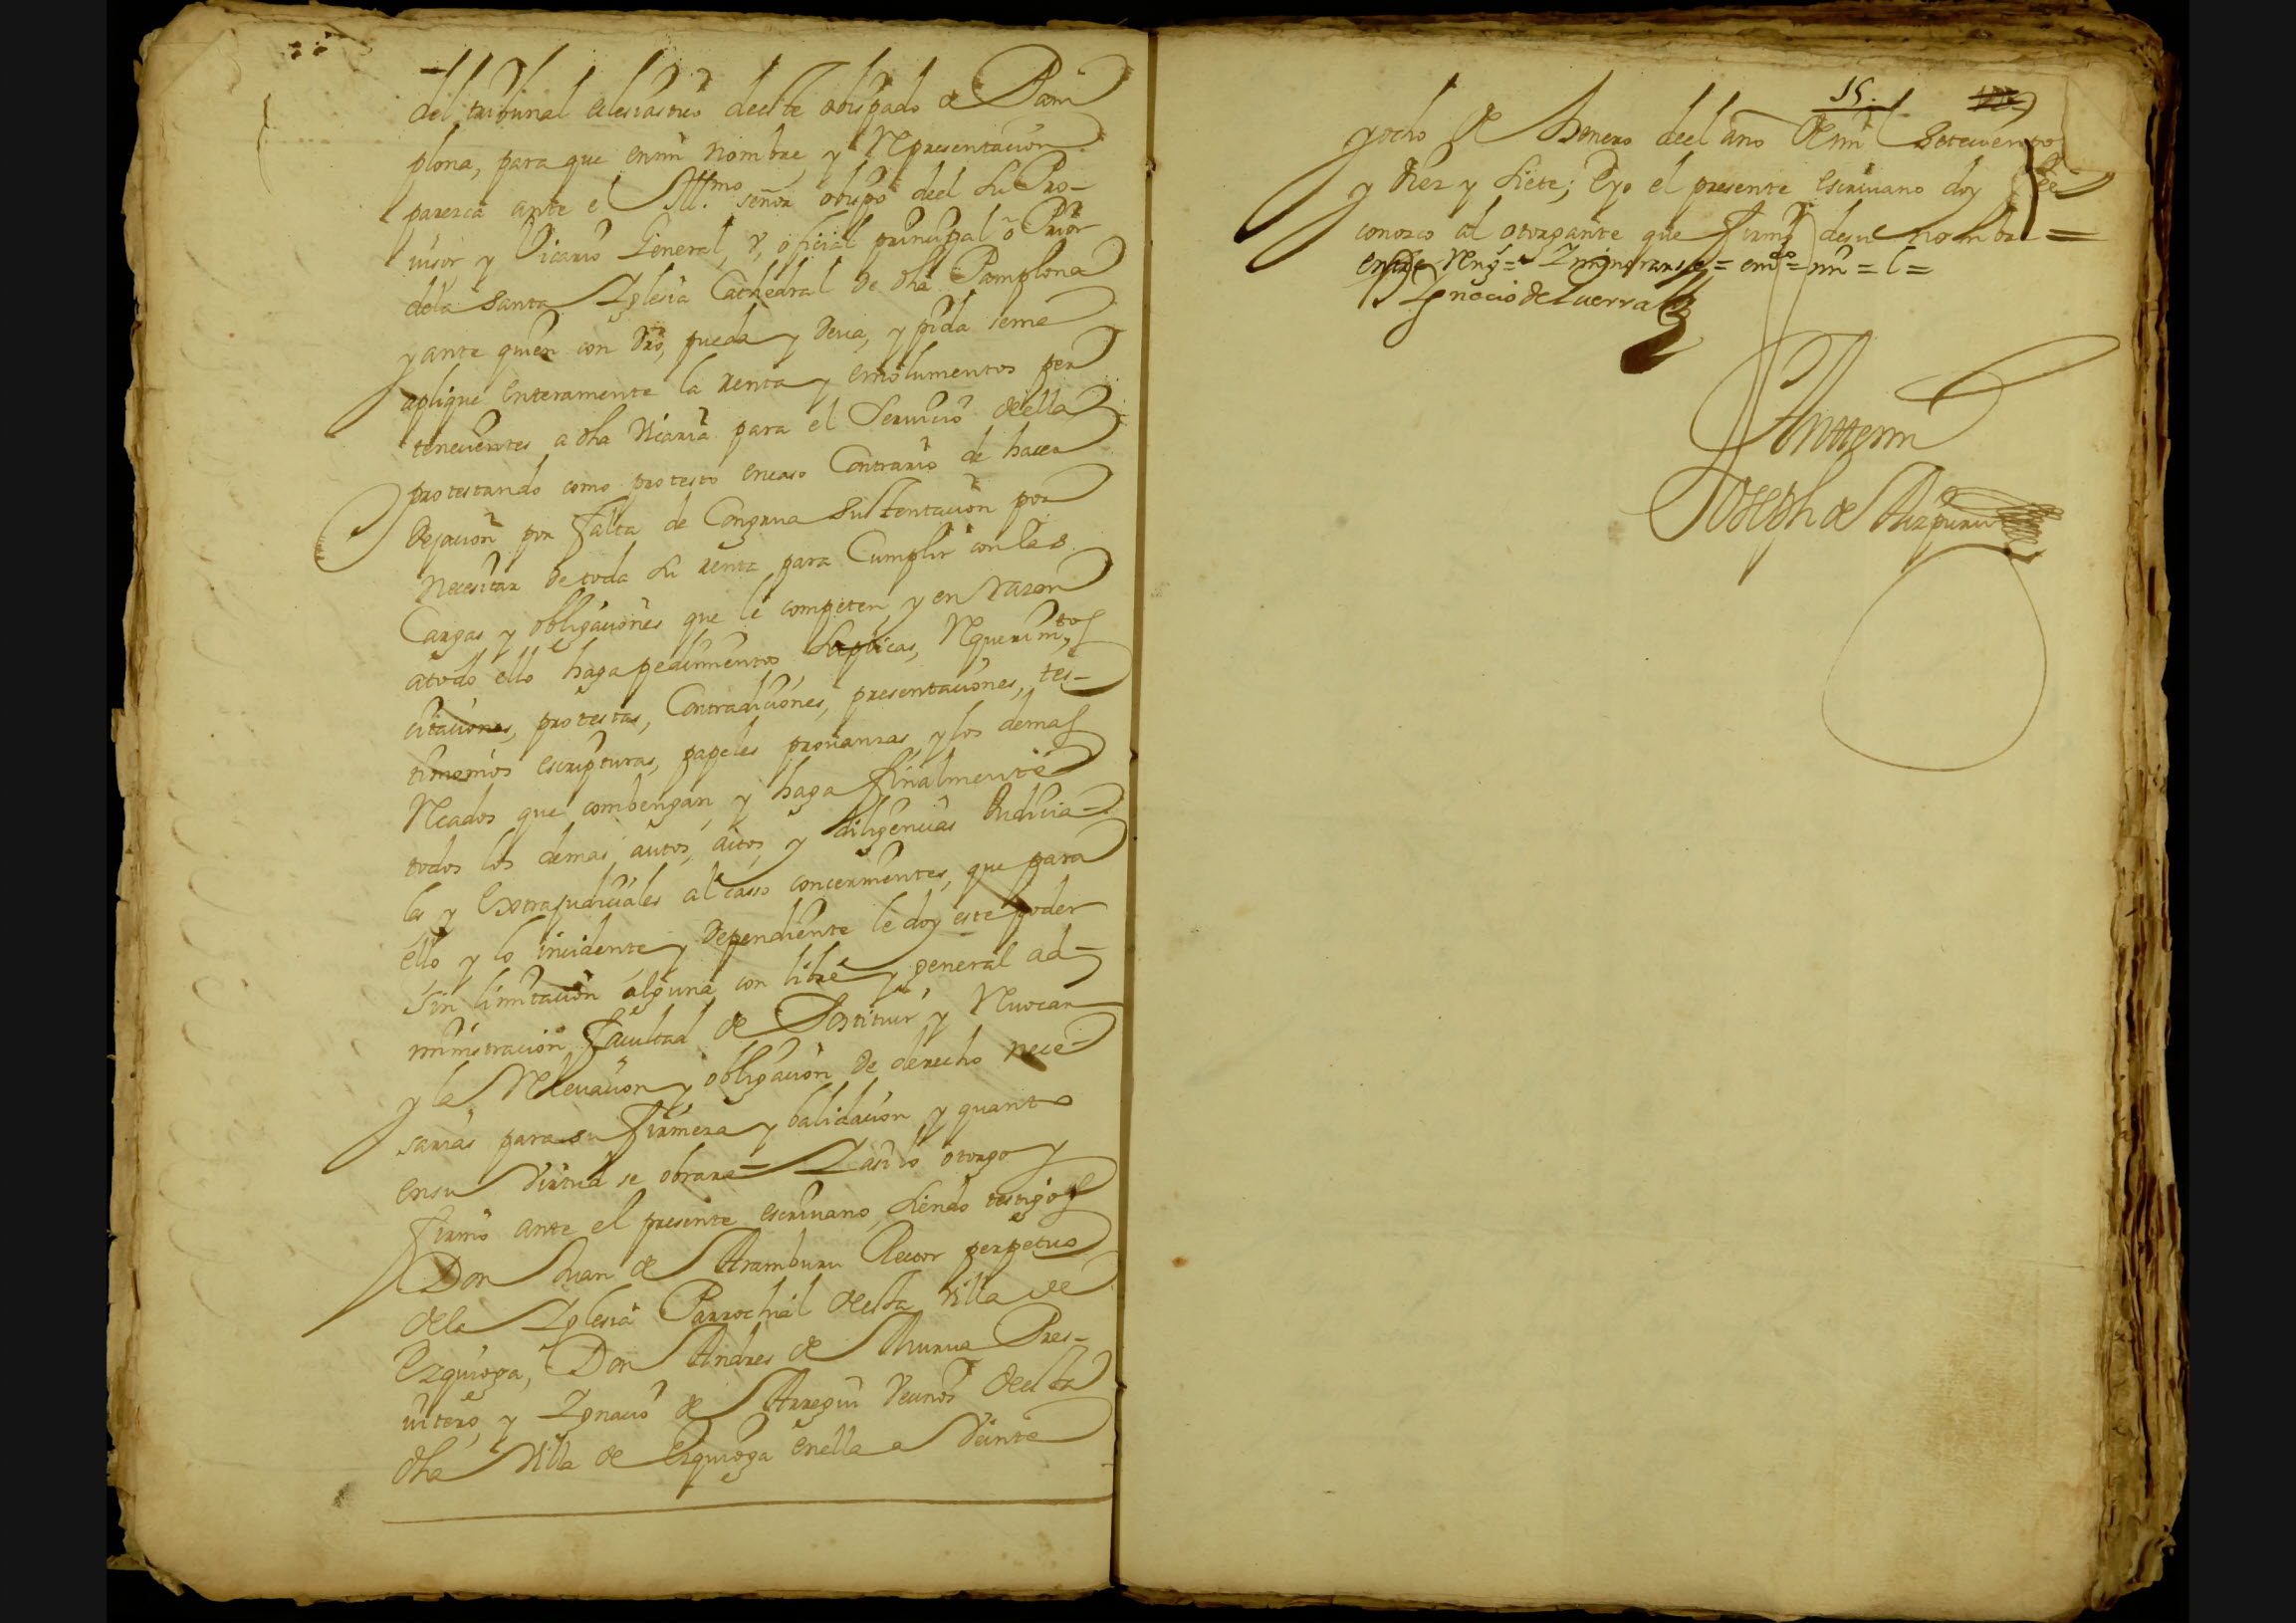 del tribunal eclesiastico deeste obispado de Pam
plona, para que en mi nombre, y Representacion
parezca ante el Ill.mo señor obispo deel su Pro-
uisor y Vicario General, y, oficial principal o Prior
dela santa Yglesia Cathedral de dha Pamplona
y ante quien con dro, pueda y deua, y pida seme
aplique enteramente la renta y emolumentos per
tenecientes a dha Vicaria para el Seruicio deella
protestando como protesto en caso Contrario de hacer
Dejacion por falta de Congrua Sustentacion por
Necesitar de toda su renta para Cumplir con las
Cargas y obligaciones que le competen, y en razon
atodo ello haga pedimentos Suplicas, Requerim.tos
citaciones, protestas, Contradiciones, presentaciones, tes-
timonios escripturas, papeles prouanzas y los demas
Rcados que combengan, y haga finalmente
todos los demas autos, actos, y diligencias Judicia-
les y Extrajudiciales al caso concernientes, que para
ello y lo incidente y Dependiente le doy este poder
Sin limitacion alguna con libre y general ad-
ministracion facultad de Sostituir y Reuocar
y la Releuacion y obligacion de derecho nece
sarias para su firmeza y balidacion y quanto
en su virtud se obrare = Y asi lo otorgo y
firmo ante el presente escriuano, Siendo testigos
Don Juan de Aramburu Rector perpetuo
dela Yglesia Parrochial desta villa de
Ezquioga, Don Andres de Murua Pres-
uitero, y Ygnacio de Arregui Vecinos deesta
dha Villa de Ezquioga en ella a Veinte
15.
y ocho de Henero deel año de mil Setecientos
y Diez y Siete; E yo el presente escriuano doy fee
conozco al otorgante que firmo de su nombre =
Ygnacio de Guerra
Ante mi
Joseph de Aizpuru